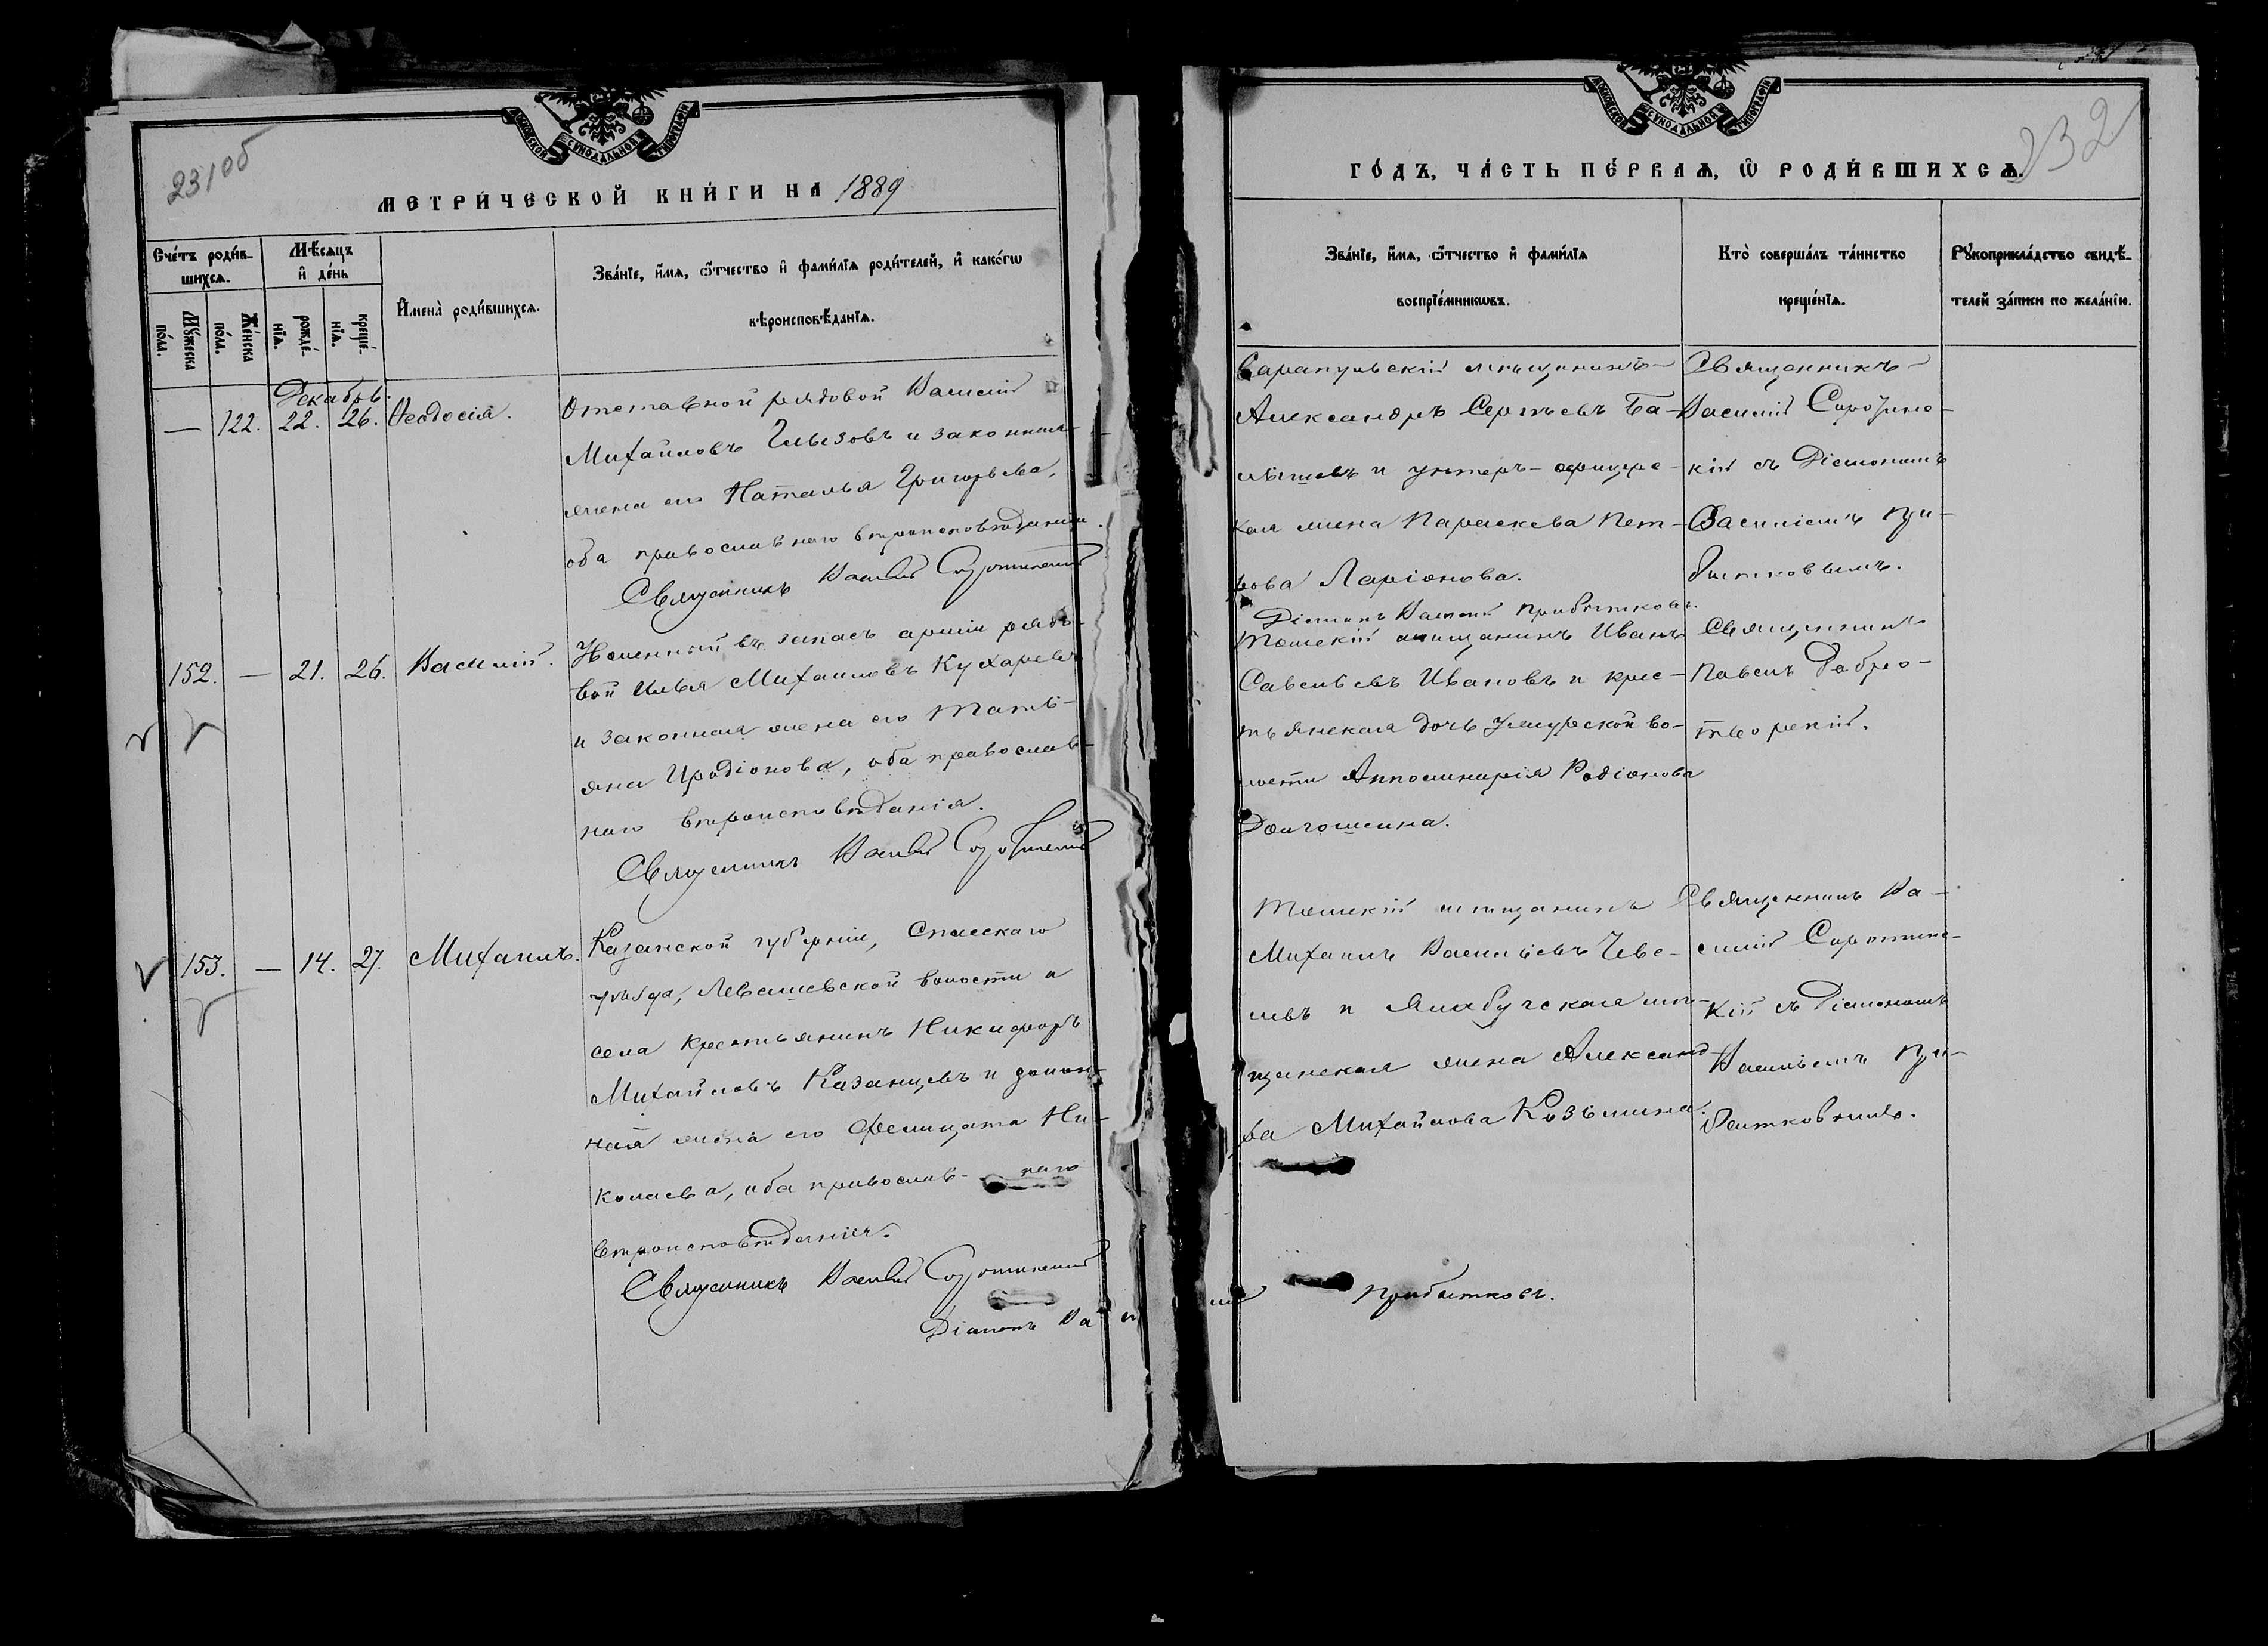 231об
МОСКОВСКОЙ СѴНОДАЛЬНОЙ ТИПОГРАФІИ
МЕТРИ́ЧЕСКОЙ КНИ́ГИ НА 1889
Сче́тъ роди́в-
шихсѧ.
Мѣ́сяцъ
и҆ де́нь
И҆мена̀ роди́вшихсѧ.
Зва́нїе, и҆́мѧ, ѻ҆́тчество и҆ фами́лїѧ роди́телей, и҆ како́гѡ
вѣроисповѣ́данїѧ.
Мꙋ́жеска по́ла.
Же́нска по́ла.
рожде́-
нїѧ.
креще́-
нїѧ.
Декабрь.
— 122. 22. 26. Ѳеодосія.
Отставной рядовой Василій
Михайловъ Глызовъ и законная
жена его Наталья Григорьева,
оба православнаго вѣроисповѣданія.
Священникъ Василій Сиротинскій
152. — 21. 26. Василій.
въ запасъ арміи рядо-
вой Илья Михаиловъ Кухаревъ
и законная жена его Татія-
на Иродіонова, оба православ-
наго вѣроисповѣданія.
Священникъ Василій Сиротинскій
153. — 14. 27. Михаилъ.
Казанской губерніи, Спасскаго
уѣзда, Левашевской волости и
села крестьянинъ Никифоръ
Михайловъ Казанцевъ и закон-
ная жена его Фелицата Ни-
колаева, оба православ-наго
вѣроисповѣданія.
Священникъ Василій Сиротинскій
Діаконъ Ва
232
МОСКОВСКОЙ СѴНОДАЛЬНОЙ ТИПОГРАФІИ
ГО́ДЪ, ЧА́СТЬ ПЕ́РВАѦ, Ѡ҆ РОДИ́ВШИХСѦ.
Зва́нїе, и҆́мѧ, ѻ҆́тчество и҆ фами́лїѧ
воспрїе́мникѡвъ.
Кто̀ соверша́лъ та́инство
креще́нїѧ.
Рꙋкоприкла́дство свидѣ́-
телей за́писи по жела́нїю.
Сарапульскій мѣщанинъ
Александръ Сергѣевъ Ба-
и унтеръ-офицерс-
кая жена Параскева Пет-
рова Ларіонова.
Діаконъ Василій Прибытковъ.
Священникъ
Василій Сиротинс-
кій съ Діакономъ
Василіемъ При-
бытковымъ.
Томскій мѣщанинъ Иванъ
Савельевъ Ивановъ и крес-
тьянская дочь волости Апполинарія Родіонова
Долгошеина.
Священникъ
Павелъ Добро-
творскій.
Томскій мѣщанинъ
Михаилъ Васильевъ
и Елабугская мѣ-
щанская жена Александ-
ра Михайлова Козьмина.
Священникъ Ва-
силій Сиротинс-
кій съ Діакономъ
Василіемъ При-
бытковымъ.
Прибытковъ.